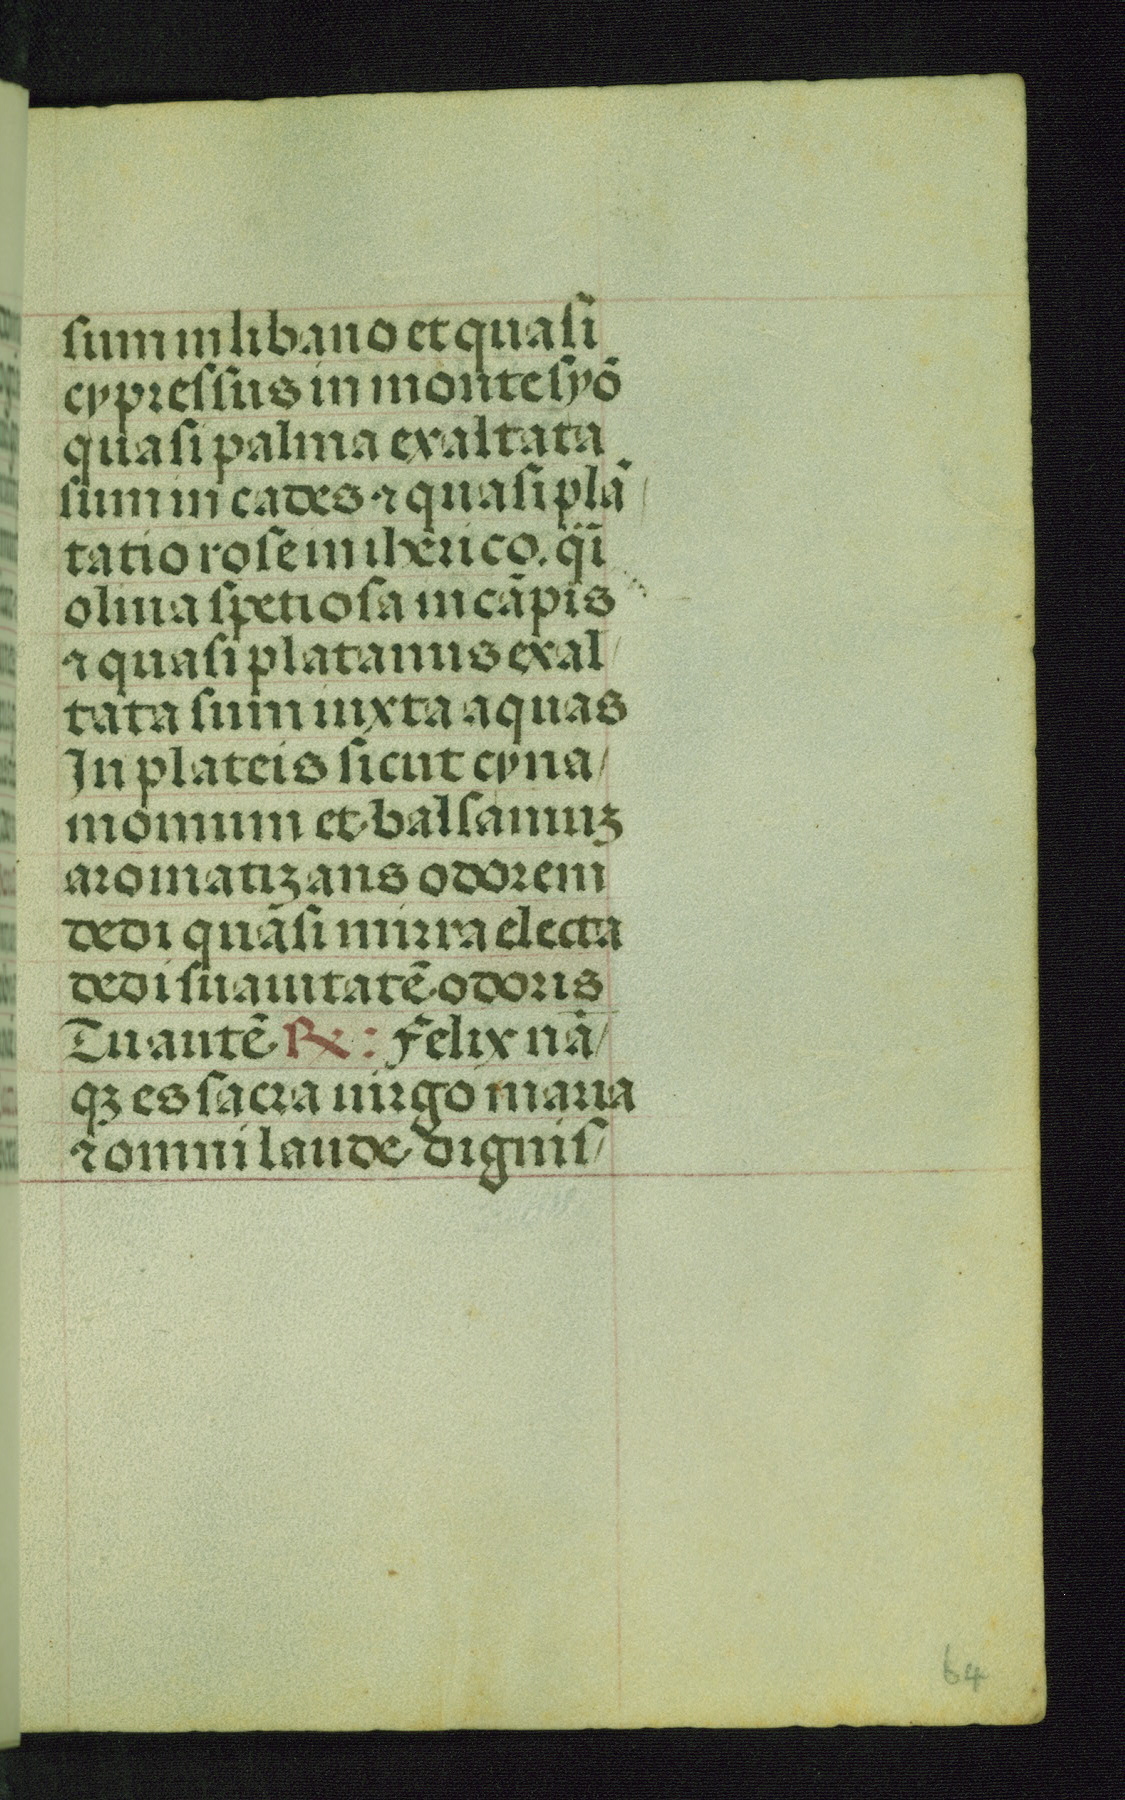 sum in libano et quasi
cypressus in monte syō
quasi palma exaltata
sum in cades ⁊ quasi plā/
tatio rose in iherico. q̄i
oliua spetiosa in cāpis
⁊ quasi platanus exal/
tata sum iuxta aquas
In plateis sicut cyna/
momum et balsamuꝫ
aromatizans odorem
dedi quāsi mirra electa
dedi suauitatē odoris
Tu autē ℟: Felix nā/
qꝫ es sacra uirgo maria
⁊ omni laude dignis/
64